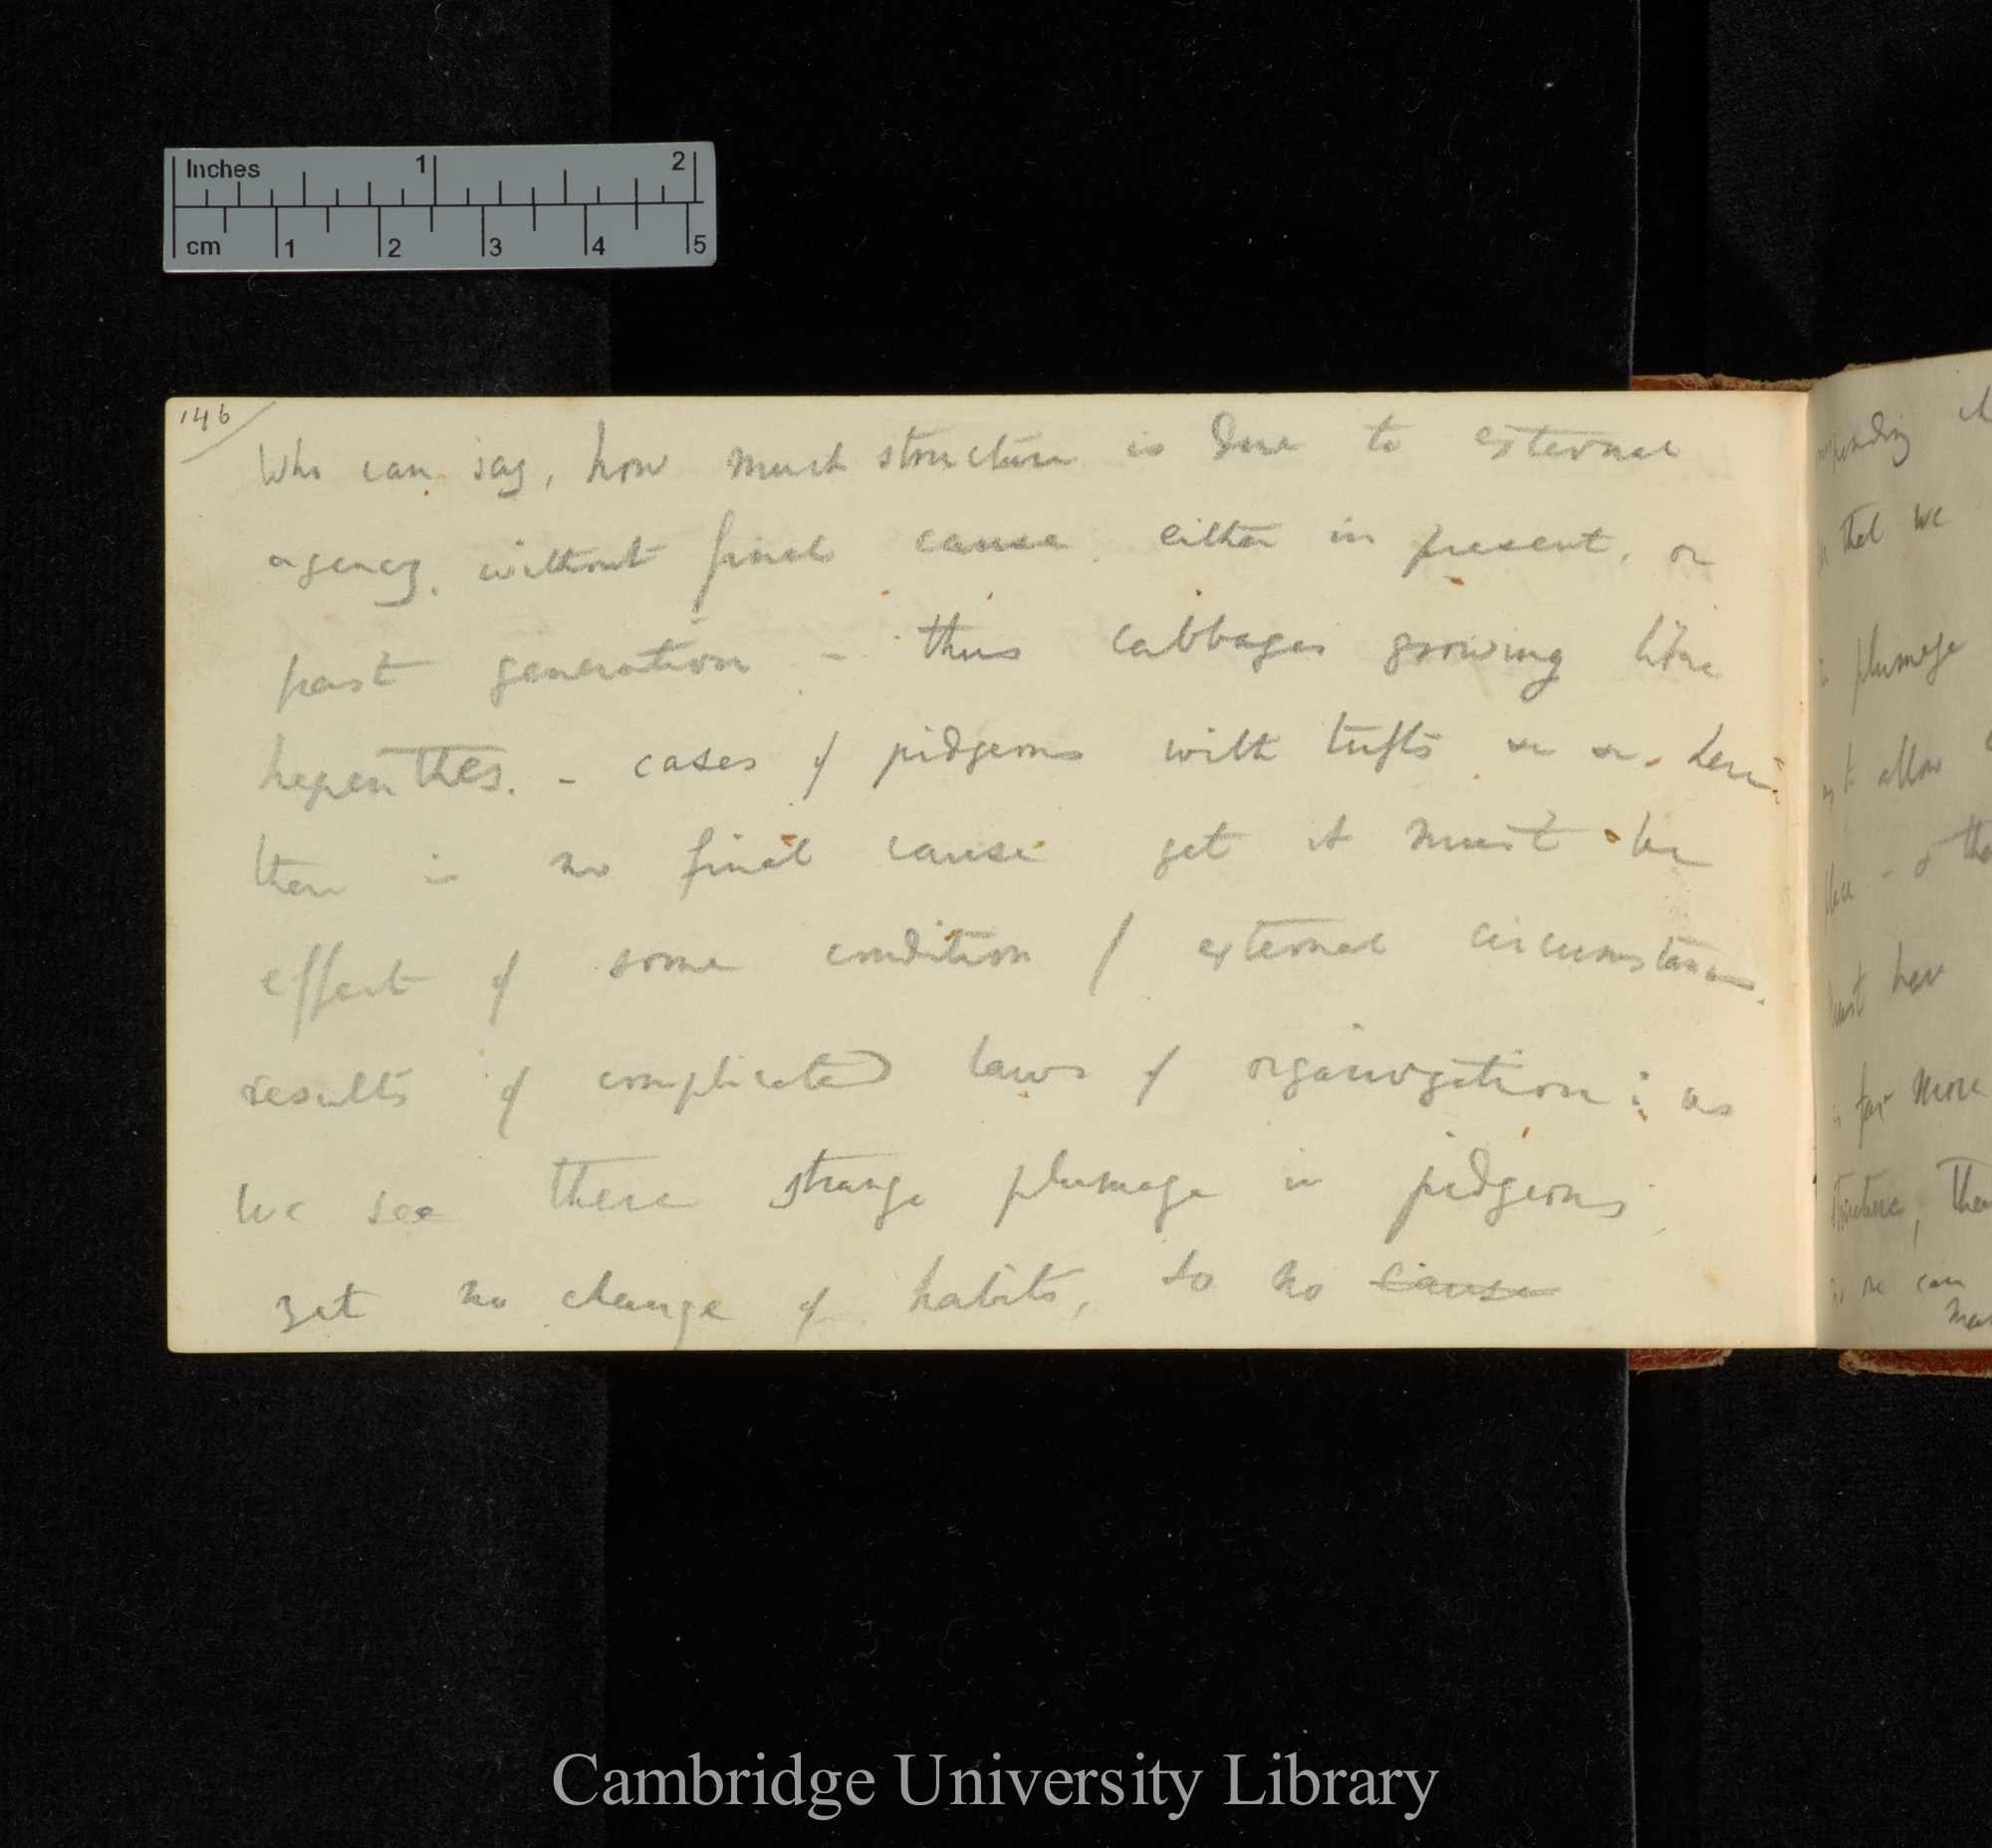 Inches 1 2
cm 1 2 3 4 5
146
Who can say, how much structure is due to external
agency, without final cause either in present, or
past generation – thus cabbages growing like
Nepenthes. – cases of pidgeons with tufts &c &c. here
there is no final cause yet it must be
effect of some condition of external circumstances,
results of complicated laws of organization: as
we see these strange plumage in pidgeons,
yet no change of habits, so no cause
that we
plumage
to allow
must have
is far more
structure,
no one can
Cambridge University Library